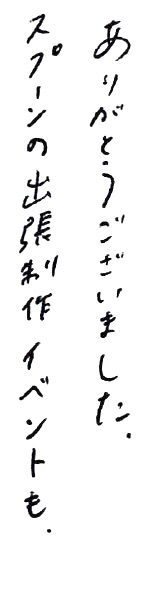 ありがとうございました.
スプーンの出張制作イベントも.